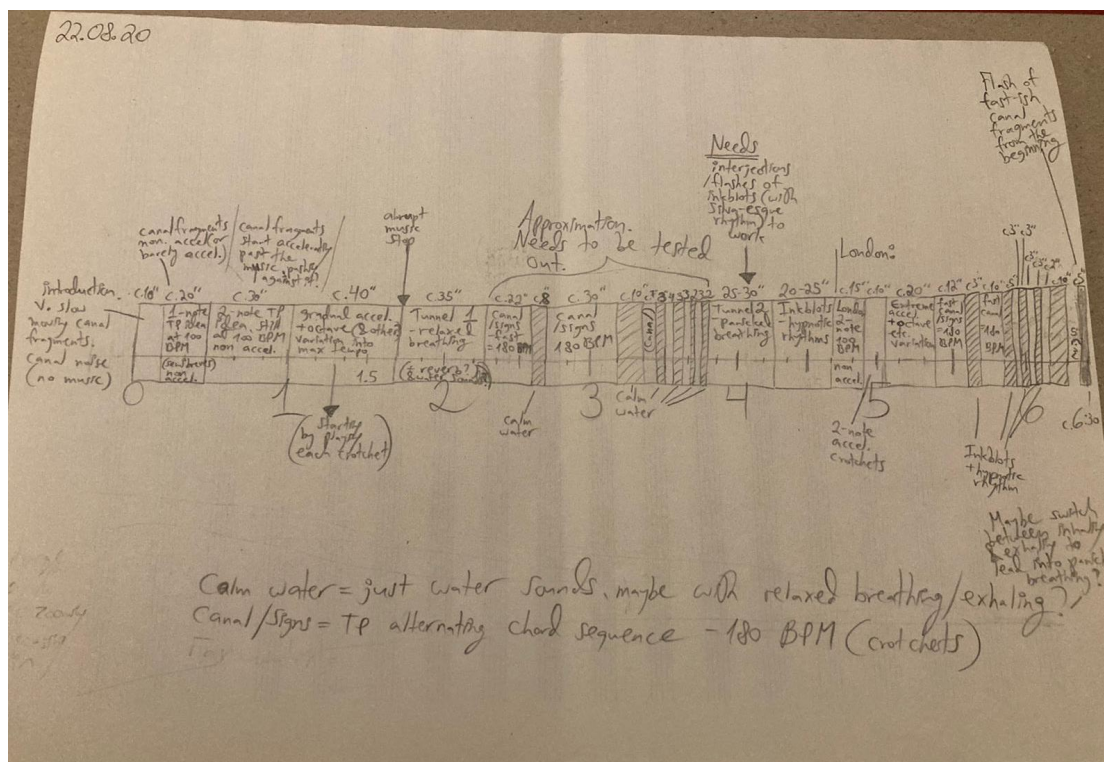 22.08.20
Flash of
fast-ish
canal
fragments
from the
beginning
Needs
interjections
/flashes of
inkblots (with
-esque
rhythm) to
work
canal fragments
non. accel (or
barely accel.)
canal fragments
start accelerating
past the
music, pushing
against it?
abrupt
music
stop
Approximation.
Needs to be tested
out.
London:
introduction.
v. slow
moving canal
fragments.
canal noise
(no music)
c.10"
c.20"
1-note
TP idea
at 100
BPM
(semibreves)
non
accel.
c.30"
2-note TP
idea. still
at 100 BPM
non accel.
c.40"
gradual accel.
+octave (& other)
variation into
max tempo
1.5
c.35"
Tunnel 1
-relaxed
breathing
(+ reverb?
& water sounds?)
c.22"
Canal
/signs
-fast-
=180 BPM
c.8"
c.30"
Canal
/signs
180 BPM
c.10"
Canal/
25-30"
Tunnel 2
panicked
breathing
20-25"
Inkblots
-hypnotic
rhythms
c.15"
London
2-
note
100
BPM
non
accel.
c.10"
c.20"
Extreme
accel
+octave
etc.
variation
c.12"
fast
canal
/signs
=180
BPM
c.3"
c.10"
fast
canal
180
BPM
c.5"
c.3"
c.3"
0
1
2
3
4
5
6
c.6:30
(starting
by playing
each crotchet)
calm
water
calm
water
2-note
accel.
crotchets
Inkblots
+hypnotic
rhythm
Maybe switch
between inhaling
& exhaling to
lead into panicked
breathing?
Calm water = just water sounds. maybe with relaxed breathing/exhaling?
Canal/signs = TP alternating chord sequence - 180 BPM (crotchests)